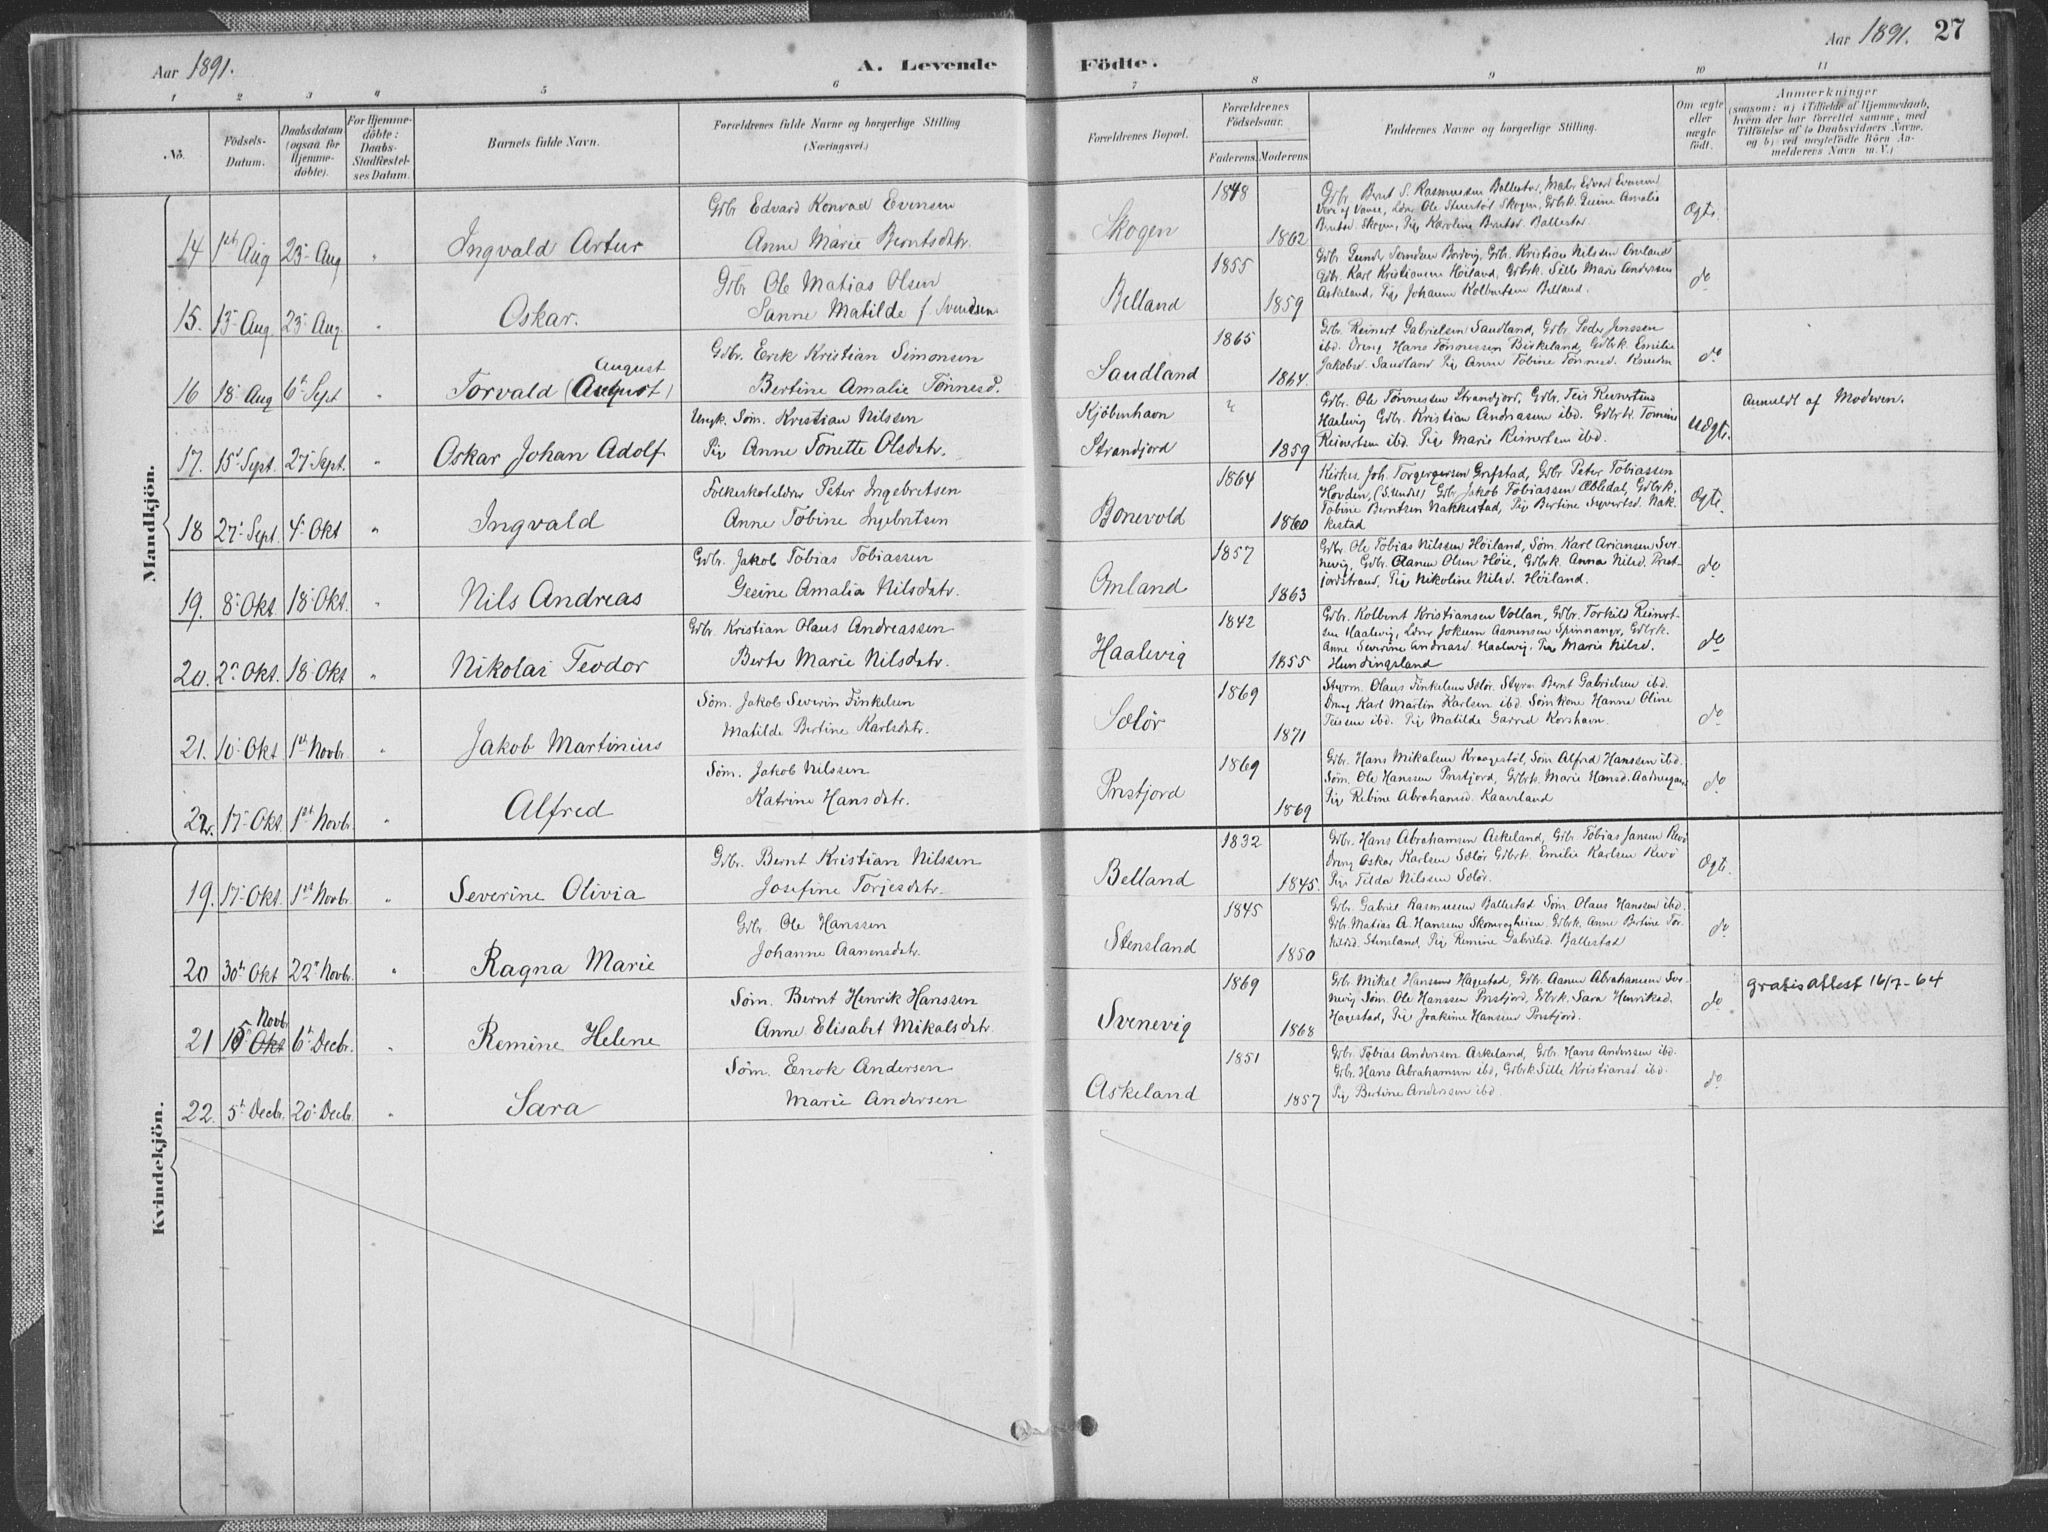 Aar 1891.
A. Levende Födte.
Aar 1891. 27
1 2 3 4 5 6 7 8 9 10 11
No.
Födsels-Datum.
Daabsdatum (ogsaa for Hjemmedöbte).
For Hjemmedöbte: Daabs-Stadfæstelses Datum.
Barnets fulde Navn.
Forældrenes fulde Navne og borgerlige Stilling (Næringsvei.)
Forældrenes Bopæl.
Forældrenes Födselsaar.
Faderens. Moderens.
Faddernes Navne og borgerlige Stilling.
Om ægte eller uægte födt.
Anmærkninger
(saasom: a) i Tilfælde af Hjemmedaab, hvem der har forrettet samme, med Tilföielse af to Daabsvidners Navne, og b) ved uægtefödte Börn Anmelderens Navn m. V.)
Mandkjön.
14 1ste Aug 23 Aug " Ingvald Artur
Gdbr Edvard Konrad Evensen
Anne Marie Berntsdtr.
Skogen 1848 1862
Gdbr Bernt S. Rasmussen Ballestad,
Ægte.
15. 13 Aug 23 Aug " Oskar.
Gdbr Ole Matias Olsen
Sanne Matilde f. Svendsen
Belland 1855 1859
Gdbr. Kristian Nilsen Omland
Gdbr. Karl Kristiansen Höiland, Gdbrk. Sille Marie Anderssen
Askeland, Pige Johanne Kolbentsen Belland.
do
16 18 Aug 6te Sept " Torvald (August) August
Gdbr. Erik Kristian Simonsen
Bertine Amalie Tönnesd.
Sandland 1865 1864
Gdbr. Reinert Gabrielsen Sandland, Gdbr. Peder Jenssen
ibd. Dreng Hans Tönnessen Birkeland, Gdbrk. Emilie
Jakobsd. Sandland Pige Anne Tobine Tönnesd.
do
17. 15 Sept. 27 Sept. " Oskar Johan Adolf
Ungk. Söm. Kristian Nilsen
Pige Anne Tonette Olsdatr.
Kjöbenhavn
Strandjord 1859
Gdbr. Ole Tönnessen Strandjord, Gdbr. Teis Reinertsen
Haalevig Gdbr. Kristian Andreasen ibd. Gdbrk. Tomine
Reinertsen ibd. Pige Marie Reinertsen ibd.
Uægte.
Anmeldt af Moderen.
18 27 Sept. 4 Okt " Ingvald
Folkeskolelærer Peter Ingebretsen
Anne Tobine Ingebritsen
Bonevold 1864 1860
Kirkes. Joh. Torgersen Grifstad, Gdbr. Peter Tobiassen
Hovden, (S. Undal) Gdbr Jakob Tobiassen Gdbrk.
Tobine Berntsen Nakkestad, Pige Bertine Syvertsd. Nakkestad
Ægte.
19. 8 Okt. 18 Okt. " Nils Andreas
Gdbr. Jakob Tobias Tobiassen
Gesine Amalia Nilsdatr.
Omland 1857 1863
Gdbr. Ole Tobias Nilssen Höiland, Söm. Karl Ariansen Svenevig, Gdbr. Aanen Olsen Höie, Gdbrk. Anna Nilsd.
Pige Nikoline Nilsd. Höiland.
do
20. 2 Okt. 18 Okt " Nikolai Teodor
Gdbr. Kristian Olaus Andreassen
Berte Marie Nilsdatr.
Haalevig 1842 1855
Gdbr. Kolbent Kristiansen Vollan, Gdbr. Torkild Reinertsen Haalevig, Jokum Aanensen Spinnanger, Gdbrk.
Anne Severine Andreasd Haalevig. Pige Marie Nilsd.
Hundingsland
do
21. 10 Okt. 1ste Novbr. " Jakob Martinius
Söm. Jakob Severin Finkelsen
Matilde Bertine Karlsdatr.
Sælör 1869 1871
Styrm. Olaus Finkelsen Sælör. Styrm. Bernt Gabrielsen ibd.
Dreng Karl Martin Karlsen ibd Sömkone Hanne Oline
Teissen ibd. Pige Matilde Garrud Korshavn.
do
22. 17 Okt. 1ste Novbr. " Alfred
Söm. Jakob Nilssen
Katrine Hansdatr.
Prestjord 1869 1869
Gdbr. Hans Mikalsen Kraagestöl, Söm Alfred Hanssen ibd.
Söm. Ole Hanssen Prestjord, Gdbrk. Marie Hansd.
Pige Rebine Abrahamsd. Kaaveland
do
Kvindekjön.
19. 17 Okt. 1ste Novbr. " Severine Olivia
Gdbr. Bernt Kristian Nilssen
Josefine Torjesdatr.
Belland 1832 1845.
Gdbr. Hans Abrahamsen Askeland, Gdbr. Tobias Jansen Revö
Dreng Oskar Karlsen Sælör Gdbrk. Emilie Karlsen Revö
Pige Tilda Nilssen Sælör.
Ægte.
20 30te Okt 22 Novbr. " Ragna Marie
Gdbr. Ole Hanssen
Johanne Aanensdatr.
Stensland 1845 1850
Gdbr. Gabriel Rasmussen Ballestad Söm. Olaus Hanssen ibd.
Gdbr. Matias A. Hanssen Skomragheien. Gdbrk. Anne Bertine Torkildsd. Stensland, Pige Remine Gabrielsd. Ballestad
do
21 15 Okt Novbr 6te Decbr. " Remine Helene
Söm. Bernt Henrik Hanssen
Anne Elisabet Mikalsdatr.
Svenevig 1869 1868
Gdbr. Mikal Hanssen Hagestad, Gdbr. Aanen Abrahamsen Svenevig Söm. Ole Hanssen Prestjord, Gdbrk. Sara Henriksd.
Hagestad, Pige Joakime Hanssen Prestjord.
do
gratis attest 16/7-64
22. 5te Decbr. 20 Decbr. " Sara
Söm. Enok Andersen
Marie Andersen
Askeland 1851 1857
Gdbr. Tobias Anderssen Askeland, Gdbr. Hans Anderssen ibd.
Gdbr. Hans Abrahamsen ibd, Gdbrk Sille Kristiansd. ibd.
Pige Bertine Anderssen ibd.
do